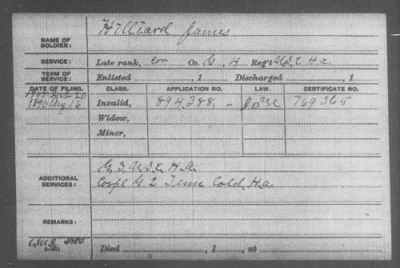 NAME OF SOLDIER: Hilliard James
SERVICE: Late rank, Co. G, H Reg't U.S.C. H.A.
TERM OF SERVICE: Enlisted , 1 Discharged , 1
DATE OF FILING. CLASS. APPLICATION NO. LAW. CERTIFICATE NO.
1890 Aug 16 Invalid, 894,288 - 769365
Widow,
Minor,
ADDITIONAL SERVICES: G. 3 U.S.C. H.A.
Corpl G 2 Tenn Cold. H.A.
REMARKS:
Died , 1 , at